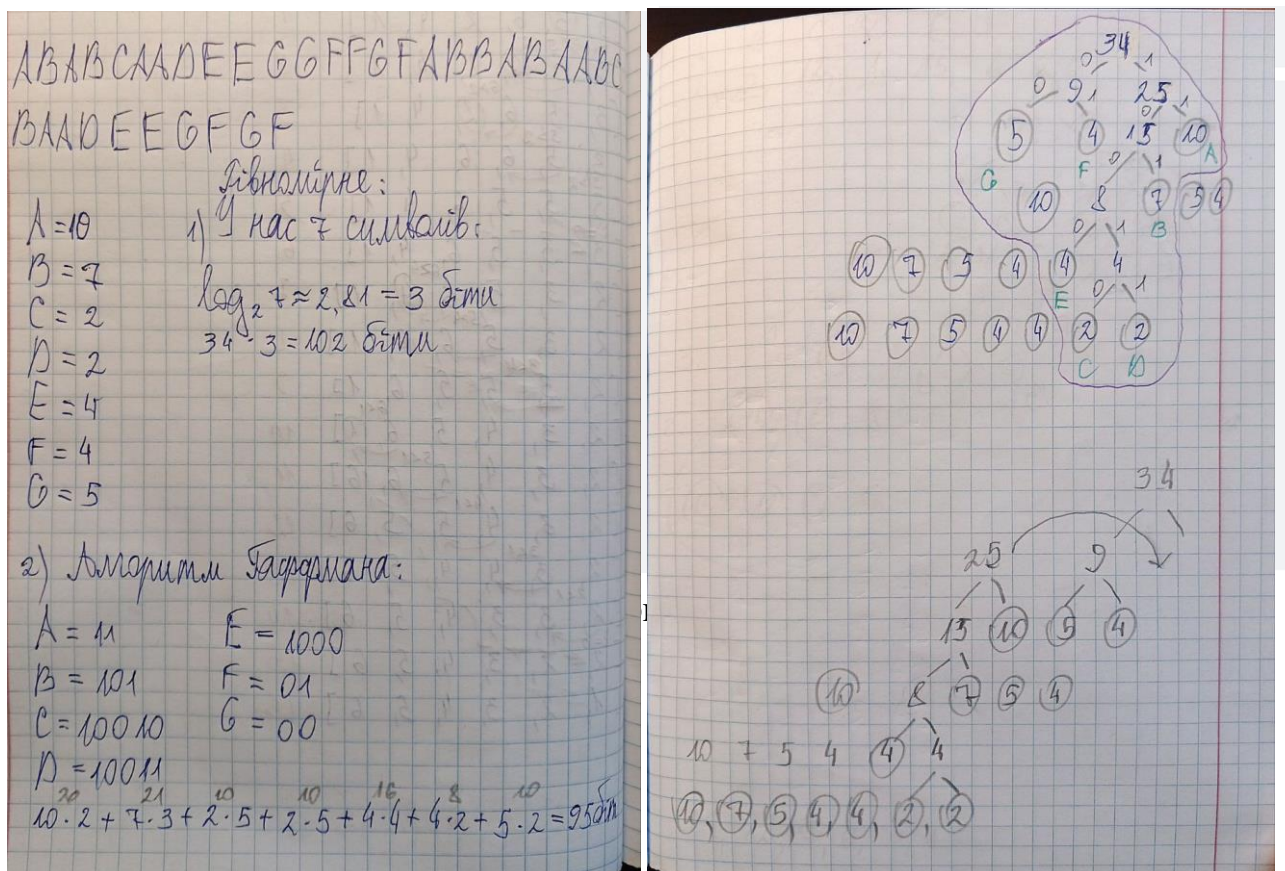 ABABCAADEEGGFFGFABBABAABC
BAADEEGFGF
Рівномірне:
A = 10
B = 7
C = 2
D = 2
E = 4
F = 4
G = 5
1) У нас 7 символів:
log₂ 7 ≈ 2,81 = 3 біти
34 · 3 = 102 біти
2) Алгоритм Гаффмана:
A = 11
B = 101
C = 10010
D = 10011
E = 1000
F = 01
G = 00
20 21 10 10 16 8 10
10·2 + 7·3 + 2·5 + 2·5 + 4·4 + 4·2 + 5·2 = 95 біт
34
0 1
0 9 1 25 1
0
5 4 15 10
A
G F 0 1
10 8 7 5 4
0 1 B
10 7 5 4 4 4
E 0 1
10 7 5 4 4 2 2
C D
34
25 9
15 10 5 4
10 8 7 5 4
10 7 5 4 4 4
10, 7, 5, 4, 4, 2, 2